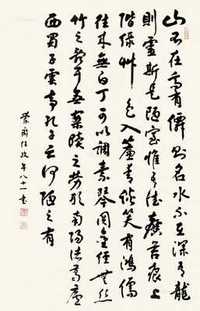 山不在高有僊則名水不在深有龍
則靈斯是陋室惟吾德馨苔痕上
階綠艸色入簾青談笑有鴻儒
往來無白丁可以調素琴閱金經無絲
竹之亂耳無案牘之勞形南陽諸葛廬
西蜀子雲亭孔子云何陋之有
年八十一書